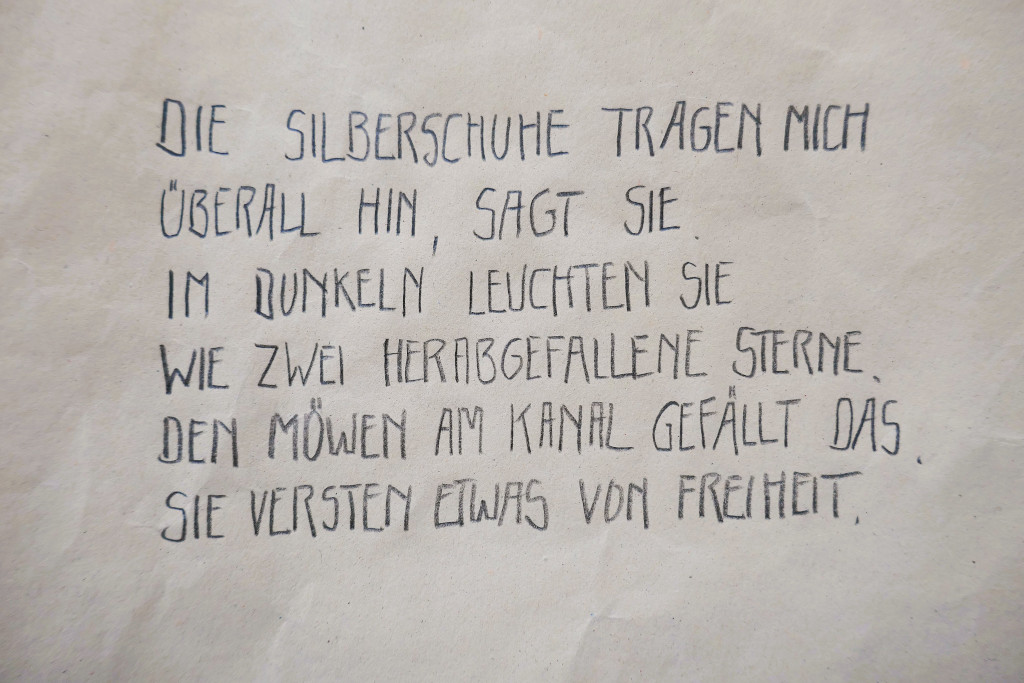 DIE SILBERSCHUHE TRAGEN MICH
ÜBERALL HIN, SAGT SIE.
IM DUNKELN LEUCHTEN SIE
WIE ZWEI HERABGEFALLENE STERNE.
DEN MÖWEN AM KANAL GEFÄLLT DAS.
SIE VERSTEN ETWAS VON FREIHEIT.